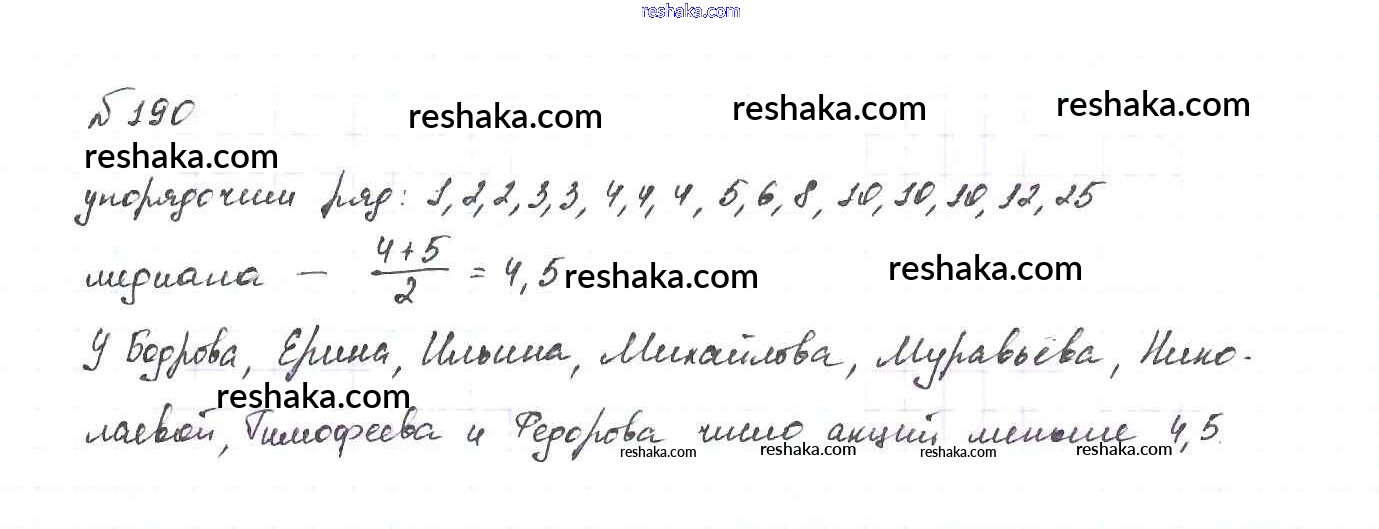 reshaka.com
№190
reshaka.com reshaka.com reshaka.com
reshaka.com
упорядочим ряд: 1, 2, 2, 3, 3, 4, 4, 4, 5, 6, 8, 10, 10, 10, 12, 25
медиана — (4+5)/2 = 4,5
reshaka.com reshaka.com
У Бодрова, Ерина, Ильина, Михайлова, Муравьёва, Нико-
reshaka.com
лаевой, Тимофеева и Федорова число акций меньше 4,5.
reshaka.com reshaka.com reshaka.com reshaka.com